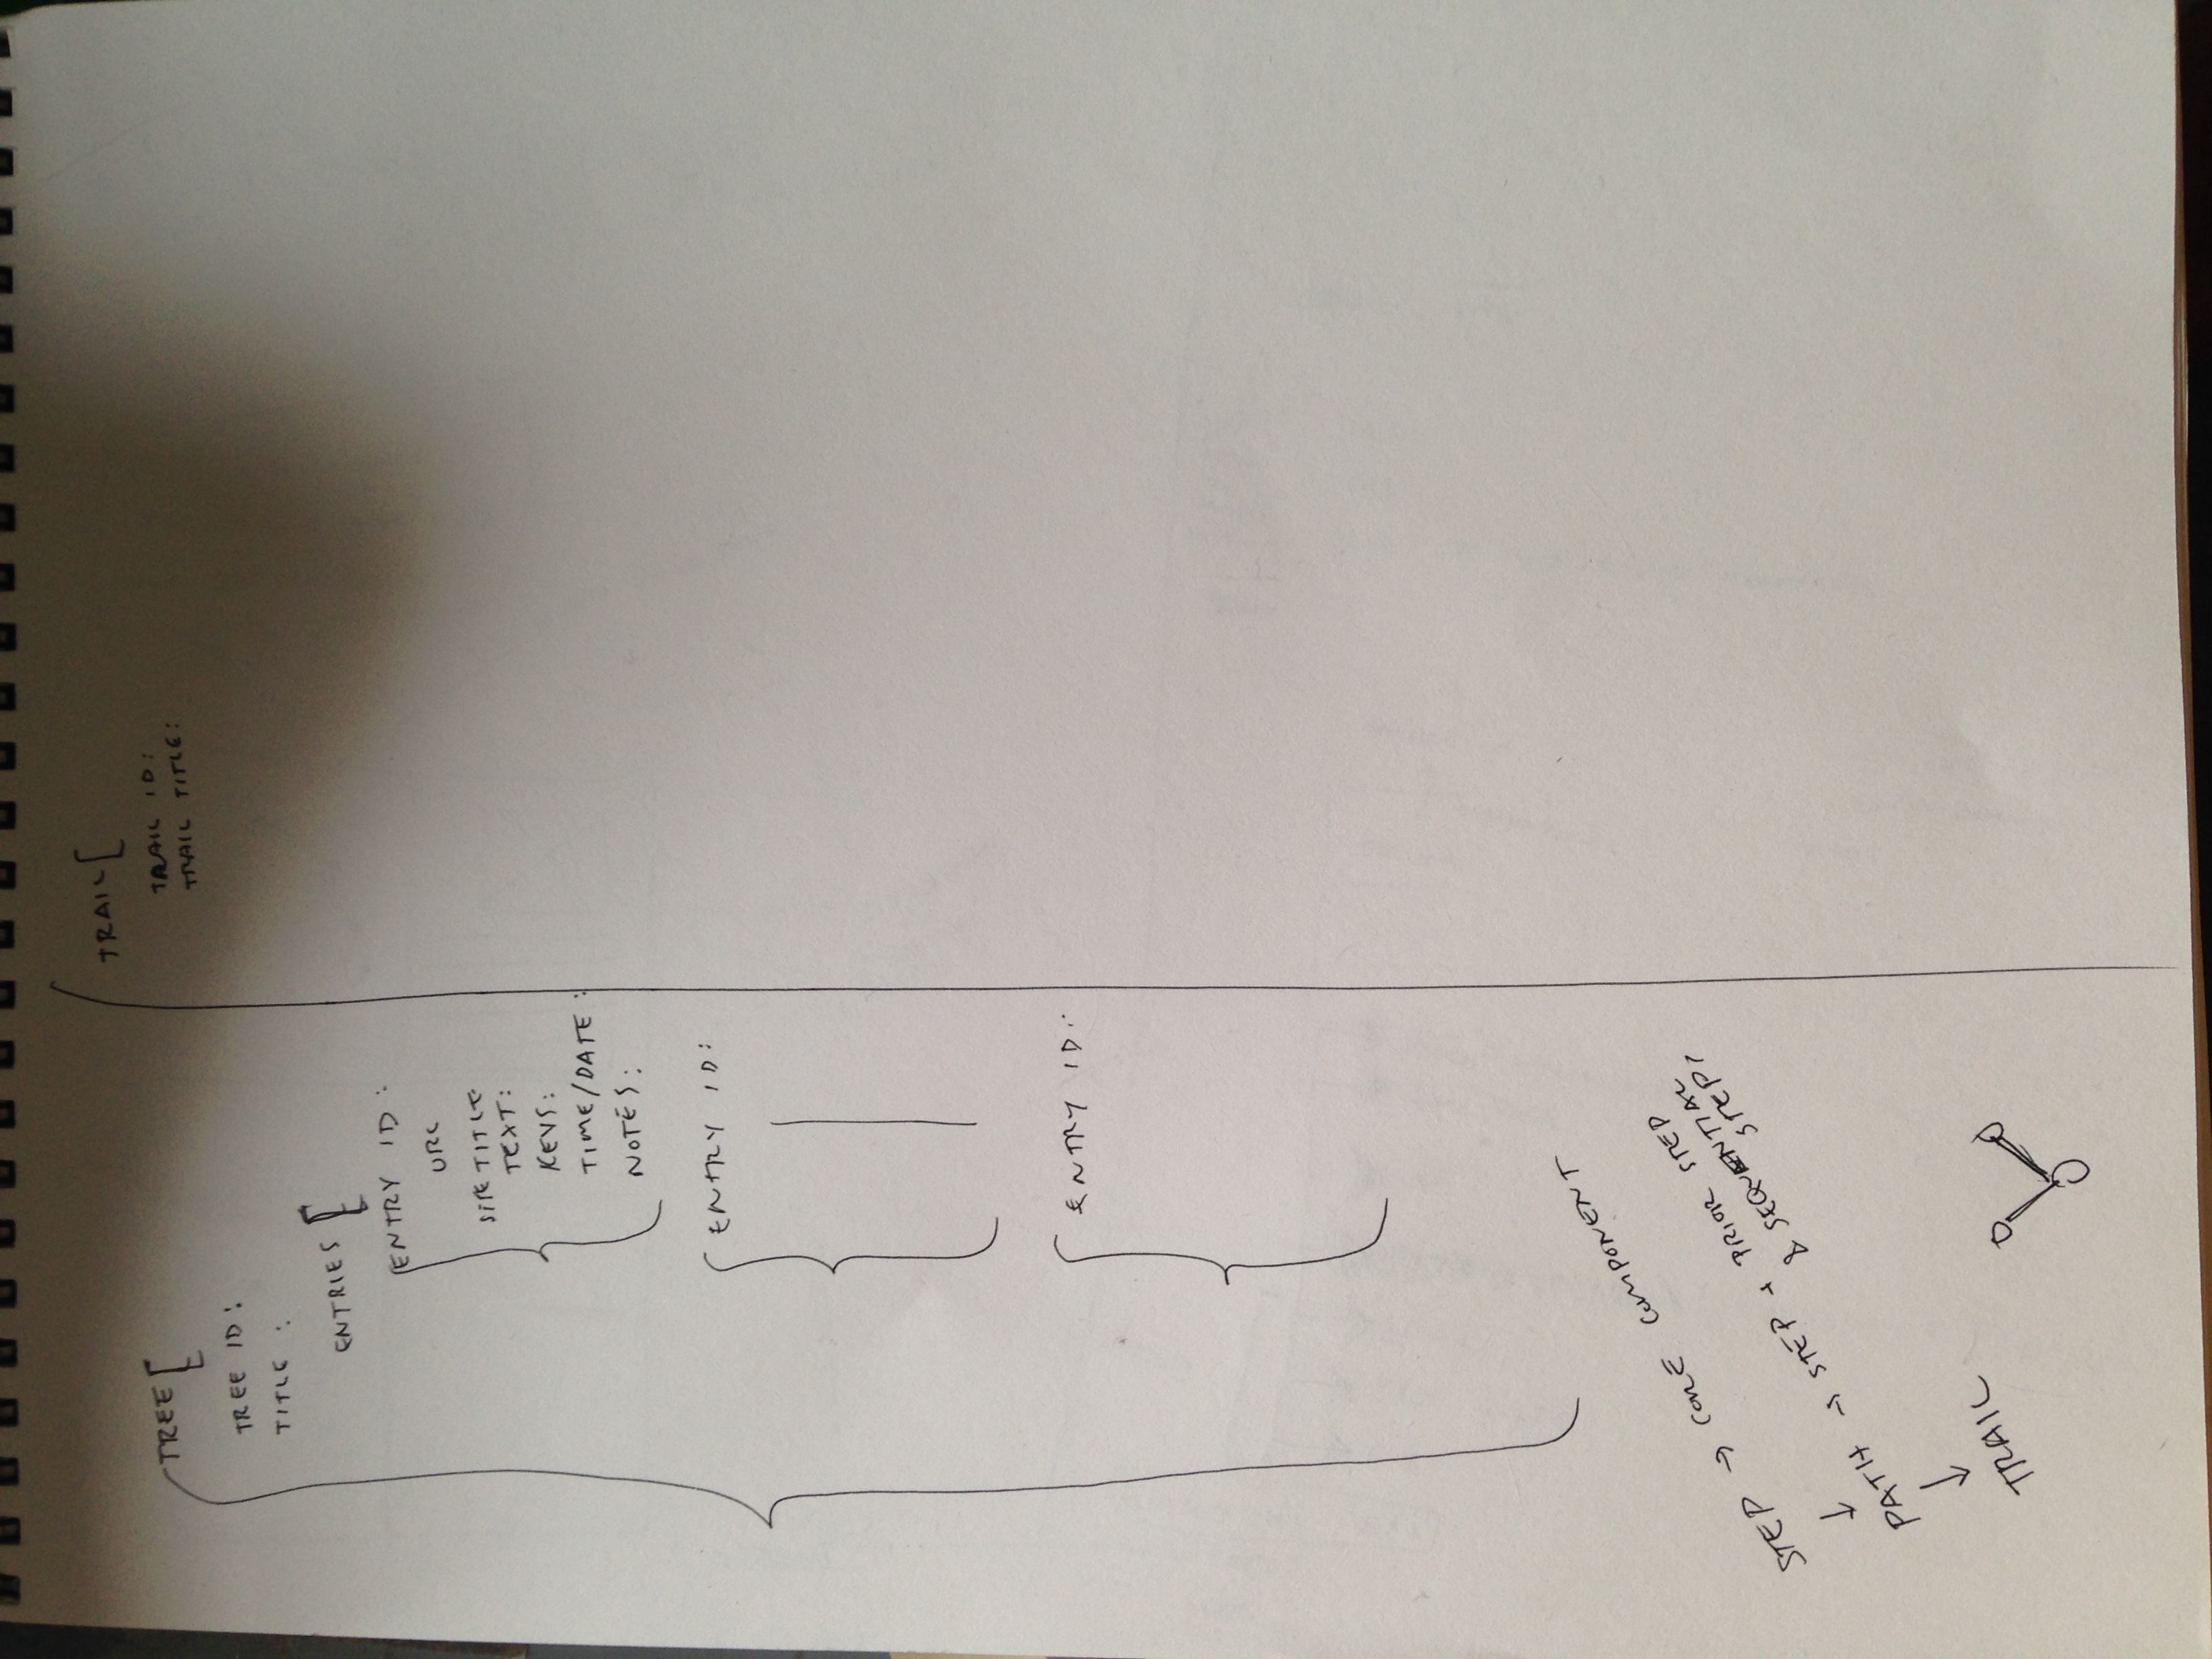 TREE [
TREE ID:
TITLE :
ENTRIES [
ENTRY ID:
URL
SITE TITLE
TEXT:
KEYS:
TIME/DATE :
NOTES:
ENTRY ID:
ENTRY ID:
STEP → CORE COMPONENT
↓
PATH → STEP + PRIOR STEP
& SEQUENTIAL
STEP,
↓
TRAIL
TRAIL [
TRAIL ID:
TRAIL TITLE: